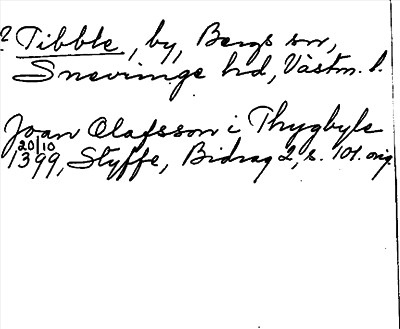 ? Tibble, by, Bergs sn,
Snevringe hd, Västm. l.
Joan Olafsson i Thygbyle
20/10 1399, Styffe, Bidrag 2, s. 101. orig.